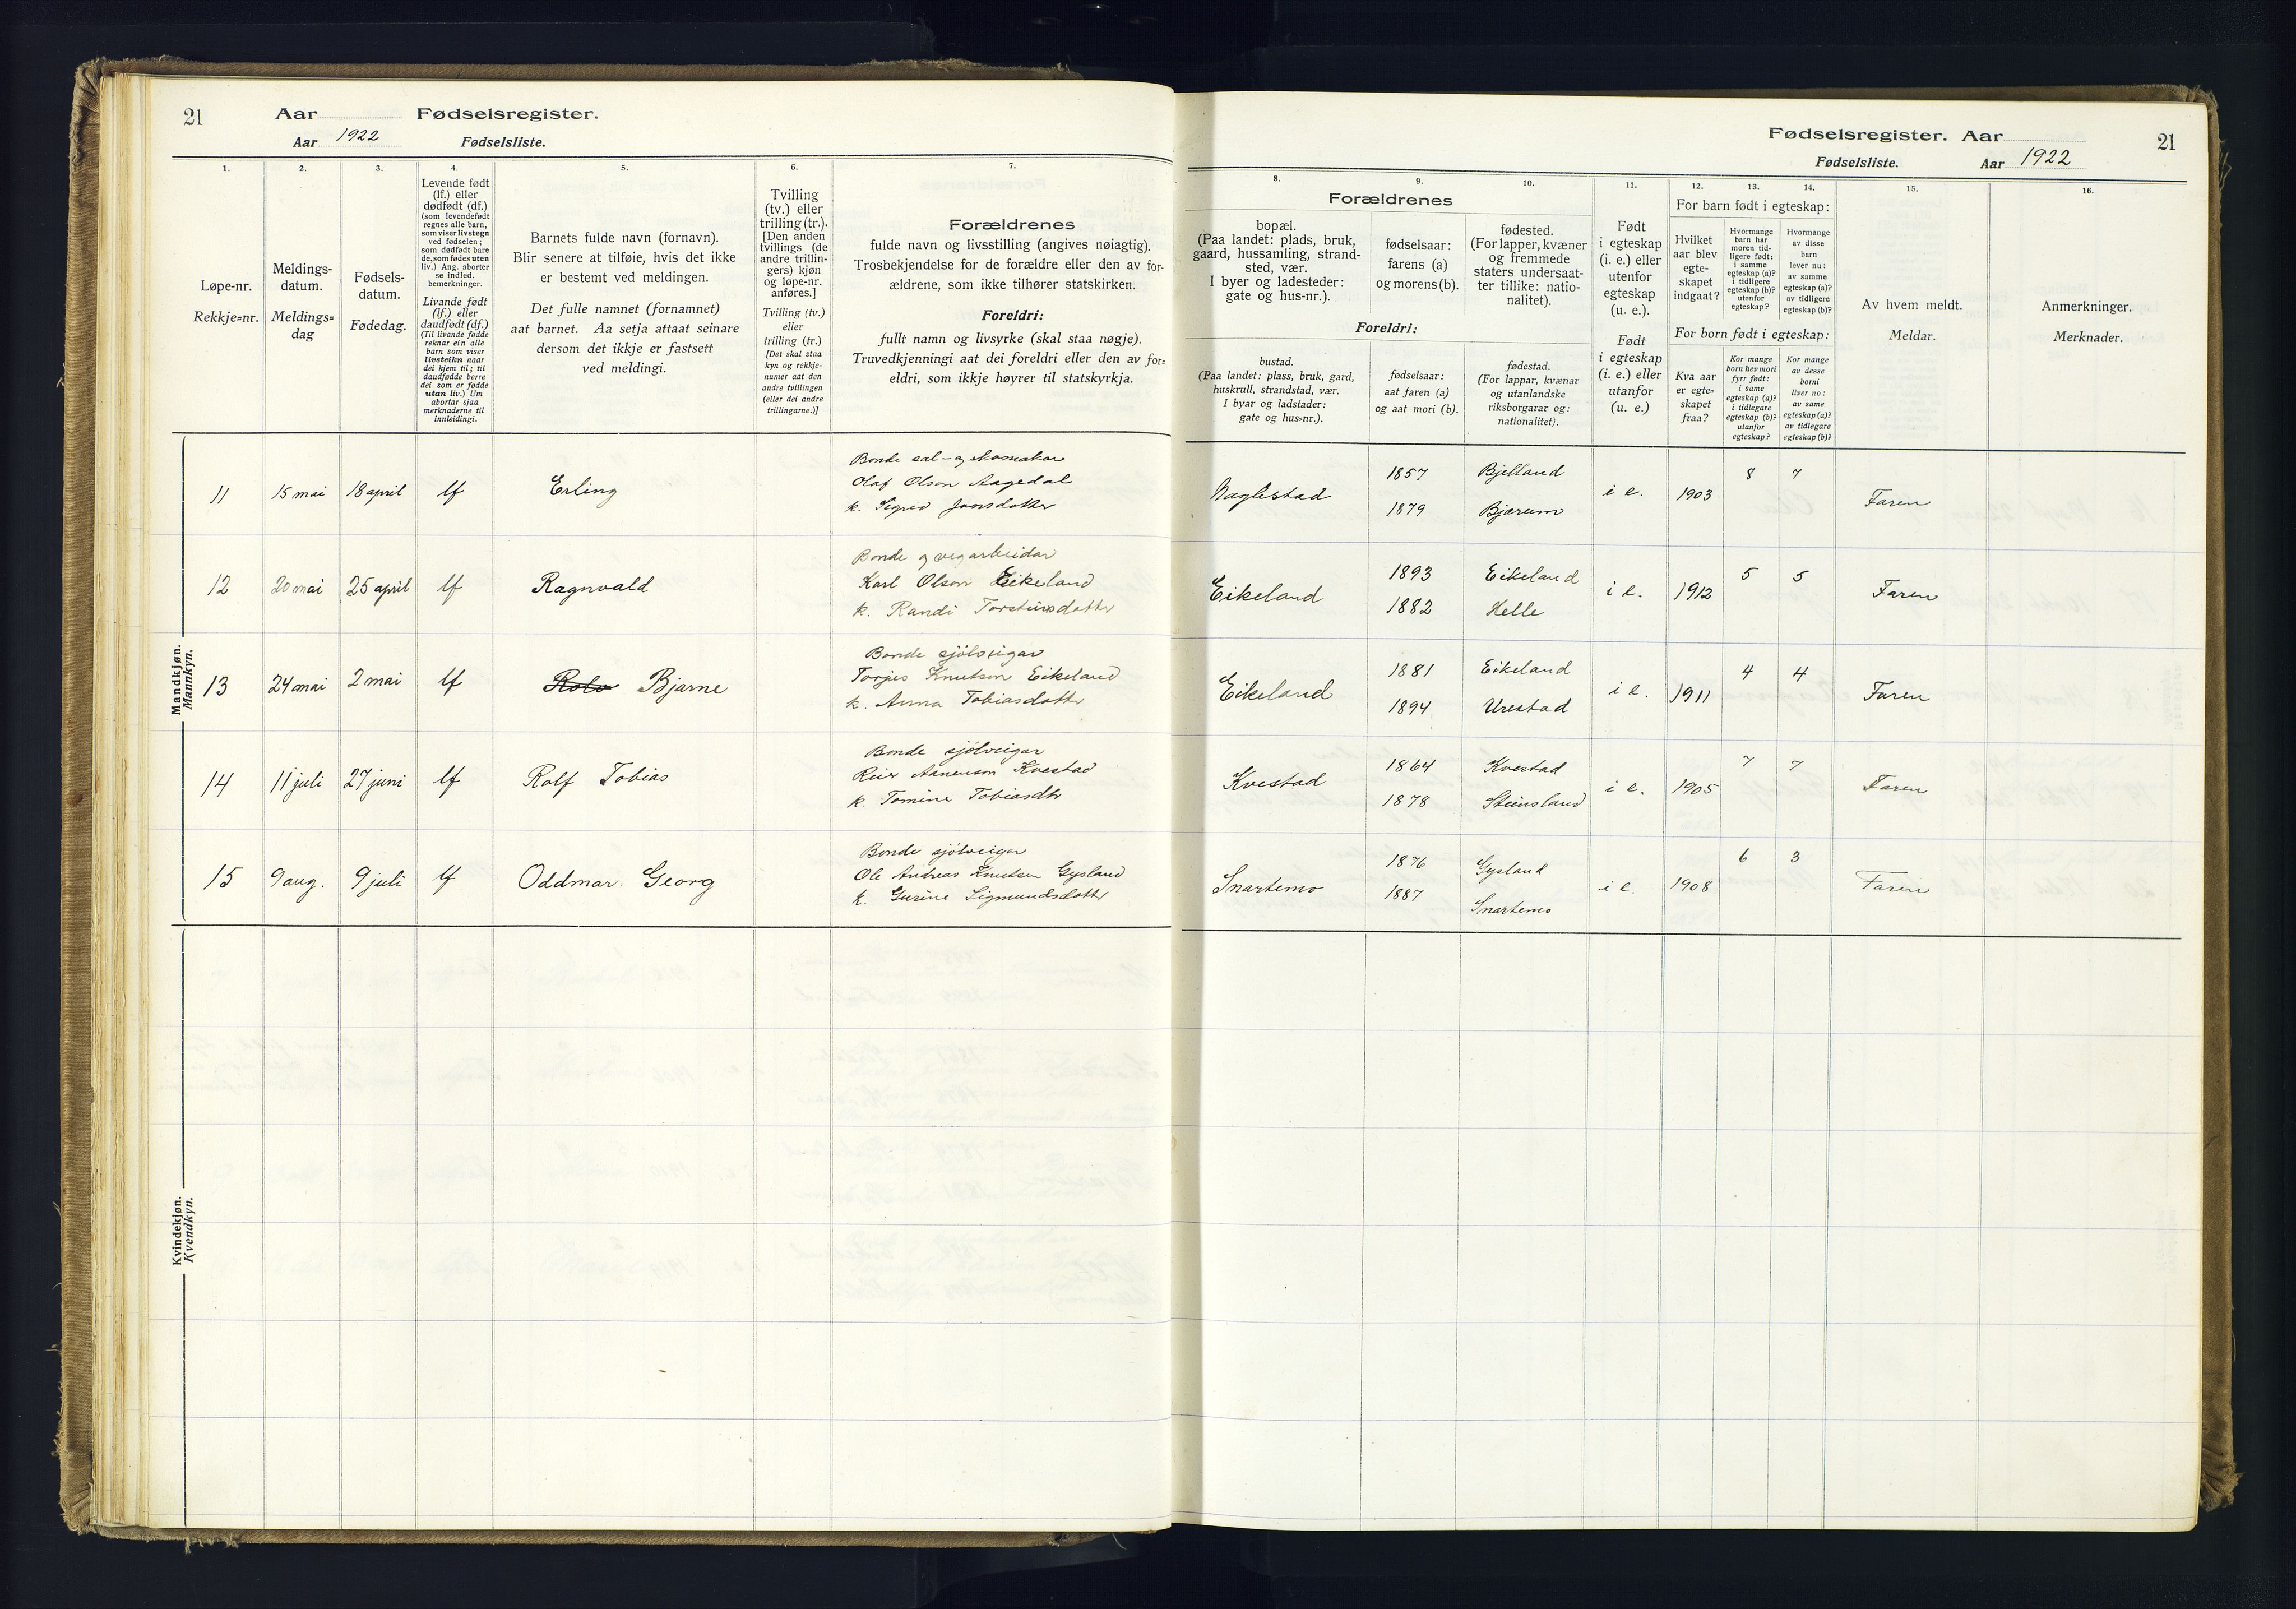 21 Aar Fødselsregister.
Aar 1922 Fødselsliste.
1. 2. 3. 4. 5. 6. 7.
Løpe-nr.
Rekkje=nr.
Meldings-
datum.
Meldings=
dag
Fødsels-
datum.
Fødedag.
Levende født
(lf.) eller
dødfødt (df.)
(som levendefødt
regnes alle barn,
som viser livstegn
ved fødselen;
som dødfødt bare
de, som fødes uten
liv.) Ang. aborter
se indled.
bemerkninger.
Livande født
(lf.) eller
daudfødt (df.)
(Til livande fødde
reknar ein alle
barn som viser
livsteikn naar
dei kjem til; til
daudfødde berre
dei som er fødde
utan liv.) Um
abortar sjaa
merknaderne til
innleidingi.
Barnets fulde navn (fornavn).
Blir senere at tilføie, hvis det ikke
er bestemt ved meldingen.
Det fulle namnet (fornamnet)
aat barnet. Aa setja attaat seinare
dersom det ikkje er fastsett
ved meldingi.
Tvilling
(tv.) eller
trilling (tr.).
[Den anden
tvillings (de
andre trillin-
gers) kjøn
og løpe-nr.
anføres.]
Tvilling (tv.)
eller
trilling (tr.)
[Det skal staa
kyn og rekkje-
numer aat den
andre tvillingen
(eller dei andre
trillingarne.)]
Forældrenes
fulde navn og livsstilling (angives nøiagtig).
Trosbekjendelse for de forældre eller den av for-
ældrene, som ikke tilhører statskirken.
Foreldri:
fullt namn og livsyrke (skal staa nøgje).
Truvedkjenningi aat dei foreldri eller den av for=
eldri, som ikkje høyrer til statskyrkja.
Mandkjøn.
Mannkyn.
11 15 mai 18 april lf Erling
Bonde sal- og skomakar
Olaf Olson Aagedal
k. Sigrid Jonsdotter
12 20 mai 25 april lf Ragnvald
Bonde og vegarbeidar
Karl Olson Eikeland
k. Randi Torsteinsdotter
13 24 mai 2 mai lf Rolv Bjarne
Bonde sjölveigar
Torjus Knutson Eikeland
k. Anna Tobiasdotter
14 11 juli 27 juni lf Rolf Tobias
Bonde sjölveigar
Reier Aanenson Kvestad
k. Tomine Tobiasdtr
15 9 aug. 9 juli lf Oddmar Georg
Bonde sjölveigar
Ole Andreas Knutson Gysland
k. Gurine Sigmundsdotter
Kvindekjøn.
Kvendkyn.
Fødselsregister. Aar 21
Fødselsliste. Aar 1922
8. 9. 10. 11. 12. 13. 14. 15. 16.
Forældrenes
bopæl.
(Paa landet: plads, bruk,
gaard, hussamling, strand-
sted, vær.
I byer og ladesteder:
gate og hus-nr.).
fødselsaar:
farens (a)
og morens (b).
fødested.
(For lapper, kvæner
og fremmede
staters undersaat-
ter tillike: natio-
nalitet).
Foreldri:
bustad.
(Paa landet: plass, bruk, gard,
huskrull, strandstad, vær.
I byar og ladstader:
gate og hus=nr.).
fødselsaar:
aat faren (a)
og aat mori (b).
fødestad.
(For lappar, kvænar
og utanlandske
riksborgarar og:
nationalitet).
Født
i egteskap
(i. e.) eller
utenfor
egteskap
(u. e.).
Født
i egteskap
(i. e.) eller
utanfor
(u. e.)
For barn født i egteskap:
Hvilket
aar blev
egte-
skapet
indgaat?
Hvormange
barn har
moren tid-
ligere født:
i samme
egteskap (a)?
i tidligere
egteskap (b)?
utenfor
egteskap?
Hvormange
av disse
barn
lever nu:
av samme
egteskap (a)?
av tidligere
egteskap (b)?
For born født i egteskap:
Kva aar
er egte=
skapet
fraa?
Kor mange
born hev mori
fyrr født:
i same
egteskap (a)?
i tidlegare
egteskap (b)?
utanfor
egteskap?
Kor mange
av desse
borni
liver no:
av same
egteskap (a)?
av tidlegare
egteskap (b)?
Av hvem meldt.
Meldar.
Anmerkninger.
Merknader.
Naglestad 1857 Bjelland i e. 1903 8 7 Faren
1879 Bjærum
Eikeland 1893 Eikeland i e. 1912 5 5 Faren
1882 Helle
Eikeland 1881 Eikeland i e. 1911 4 4 Faren
1894 Urestad
Kvestad 1864 Kvestad i e. 1905 7 7 Faren
1878 Steinsland
Snartemo 1876 Gysland i e. 1908 6 3 Faren
1887 Snartemo